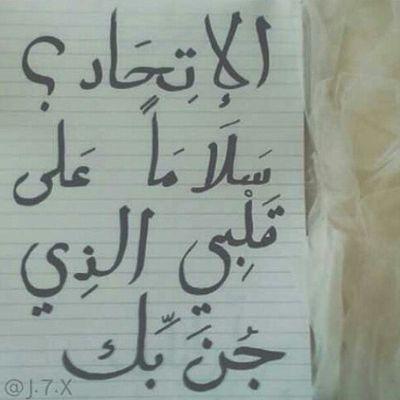 الإتِحَاد ؟
سَلَامَاً عَلى
قَلْبِي الذِي
جُنَ بِّك
@J.7.X